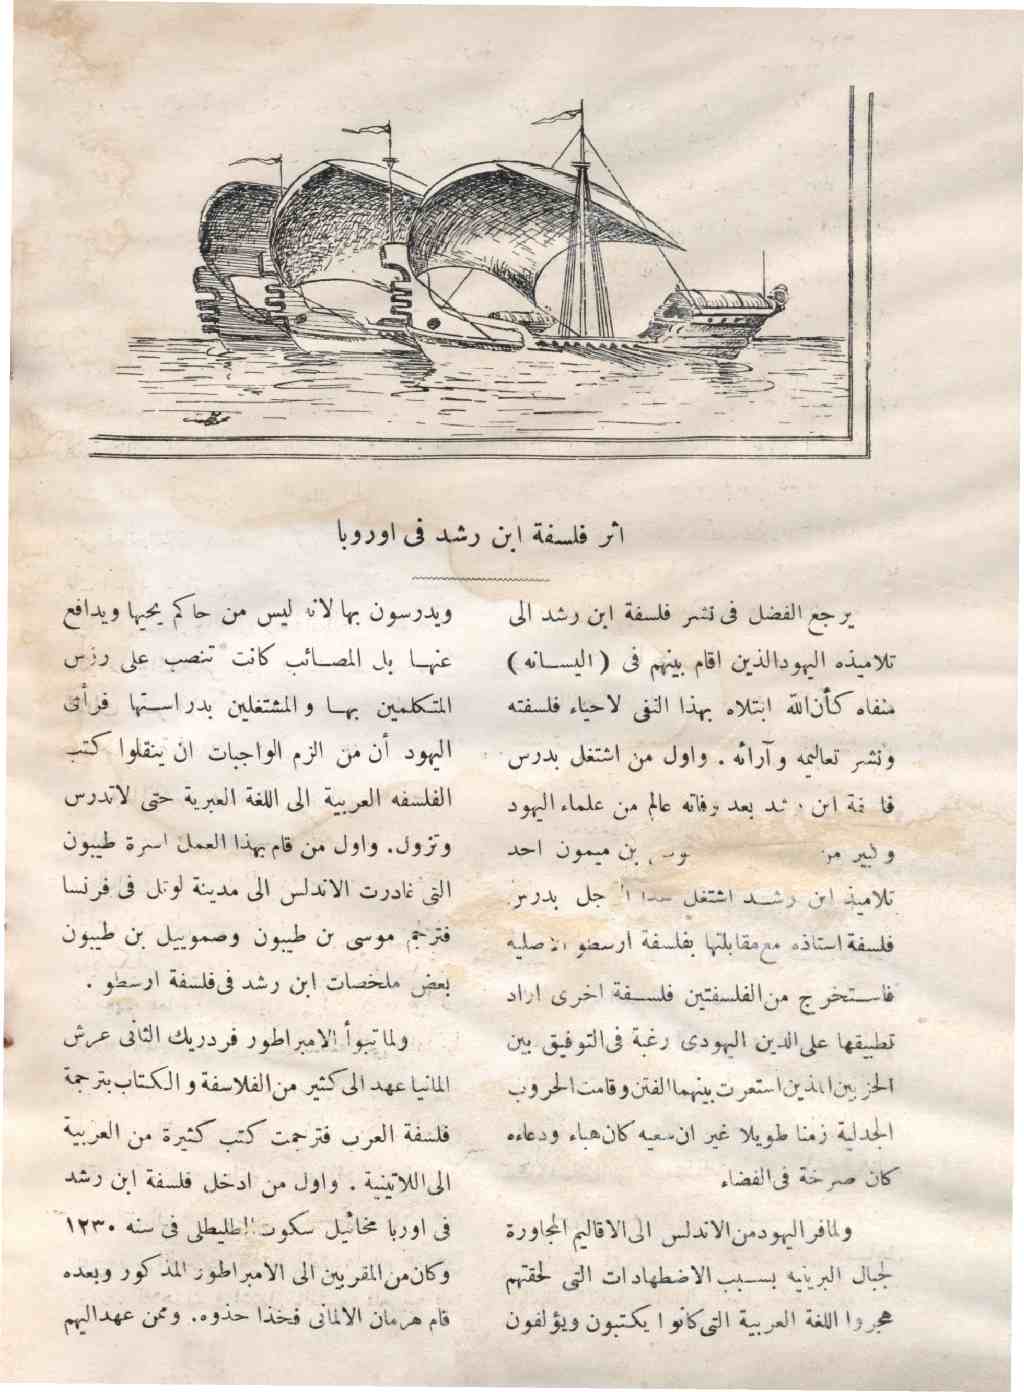 اثر فلسفة ابن رشد فى اوروبا
يرجع الفضل فى نشر فلسفة ابن رشد الى
تلاميذه اليهود الذين اقام بينهم فى ( اليســانه )
منفاه كأن الله ابتلاه بهذا النفى لاحياء فلسفته
ونشر تعاليمه وآرائه . واول من اشتغل بدرس
ابن رشد بعد وفاته عالم من علماء اليهود
وكبير بن ميمون احد
تلاميذ ابن رشــد اشتغل هذا الرجل بدرس
فلسفة استاذه مع مقابلتها بفلسفة ارسطو الاصليه
فاســتخرج من الفلسفتين فلســفة اخرى اراد
تطبيقها على الدين اليهودى رغبة فى التوفيق بين
الحزبين اللذين استعرت بينهما الفتن وقامت الحروب
الجدلية زمنا طويلا غير ان سعيه كان هباء ودعاءه
كان صرخة فى الفضاء
ولما فر اليهود من الاندلس الى الاقاليم المجاورة
لجبال البرينيه بســبب الاضطهادات التى لحقتهم
هجروا اللغة العربية التى كانوا يكتبون ويؤلفون
ويدرسون بها لانه ليس من حاكم يحيها ويدافع
عنهــا بل المصــائب كانت تنصب على رؤس
المتكلمين بهــا والمشتغلين بدراســتها فرأى
اليهود أن من الزم الواجبات ان ينقلوا كتب
الفلسفه العربية الى اللغة العبرية حتى لاتدرس
وتزول. واول من قام بهذا العمل اسرة طيبون
التى غادرت الاندلس الى مدينة لونل فى فرنسا
فترجم موسى بن طيبون وصموييل بن طيبون
بعض ملخصات ابن رشد فى فلسفة ارسطو .
ولما تبوأ الامبراطور فردريك الثانى عرش
المانيا عهد الى كثير من الفلاسفة والكتاب بترجمة
فلسفة العرب فترجمت كتب كثيرة من العربية
الى اللاتينية . واول من ادخل فلسفة ابن رشد
فى اوربا مخائيل سكوت الطليطلى فى سنه ١٢٣٠
وكان من المقربين الى الامبراطور المذكور وبعده
قام هرمان الالمانى فحذا حذوه. وممن عهد اليهم